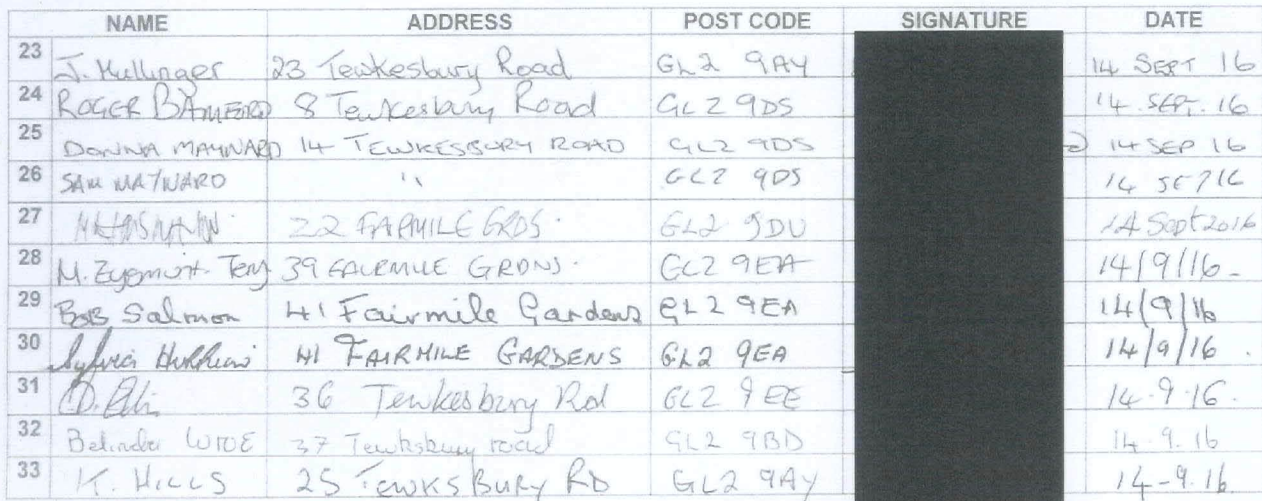 NAME ADDRESS POST CODE SIGNATURE DATE
23 J. Hullinger 23 Tewkesbury Road GL2 9AY 14 SEPT 16
24 ROGER BAMFORD 8 Tewkesbury Road GL2 9DS 14. SEPT. 16
25 DONNA MAYNARD 14 TEWKESBURY ROAD GL2 9DS 14 SEP 16
26 SAM MAYNARD " GL2 9DS 14 SEP 16
27 22 FAIRMILE GRDS. GL2 9DU 14 Sept 2016
28 M. Zygmunt- 39 FAIRMILE GRDNS. GL2 9EA 14/9/16-
29 BOB Salmon 41 Fairmile Gardens GL2 9EA 14/9/16
30 Sylvia 41 FAIRMILE GARDENS GL2 9EA 14/9/16.
31 36 Tewkesbury Rd GL2 9EE 14.9.16.
32 Belinda WIDE 37 Tewksbury road GL2 9BD 14.9.16
33 K. HILLS 25 TEWKSBURY RD GL2 9AY 14-9.16.